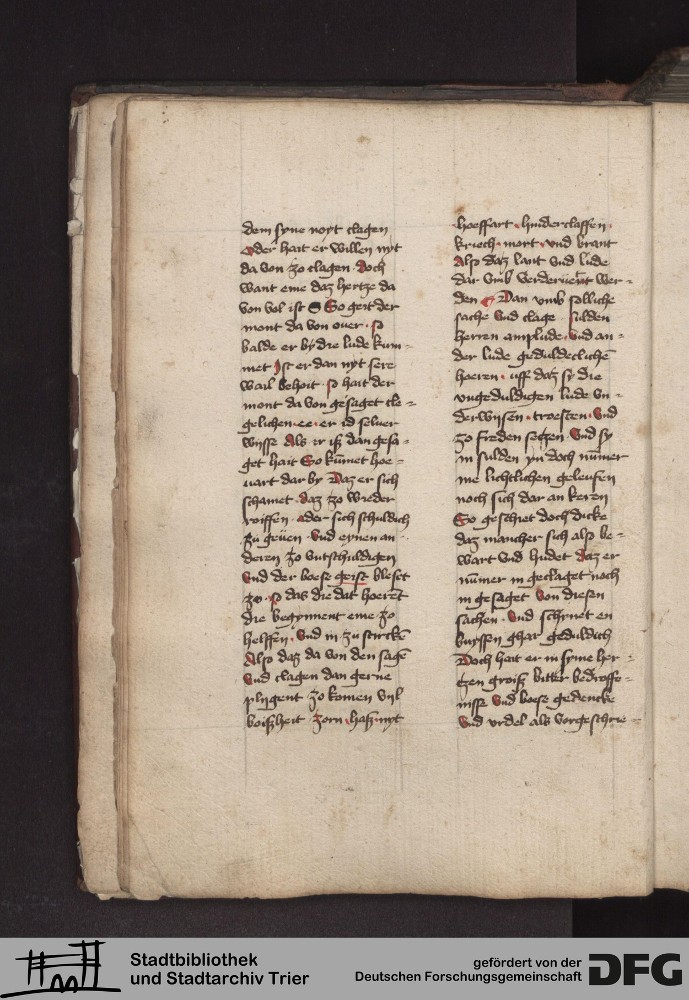 dem syne noyt clagen
Oder hait er willen nyt
da von zo clagen · doch
want eme daz hertze da
von vol ist So geit der
mont da von over · so
balde er by die lude kum-
met Ist er dan nyt sere
wail behoit · so hait der
mont da von gesaget cle-
gelichen · ee · er id selver
wisse Als er iß dan gesa-
get hait So kummet hoe-
vart dar by Daz er sich
schamet · daz zo wieder
roiffen · oder sich schuldich
zu geven · Und eynen an-
deren zo untschuldigen
Und der boese geist bleset
zo · so daz die dat hoerent
die begynnent eme zo
helffen · Und in zu stircken
Also daz da von den sagen
Und clagen dan gerne
plygent zo komen vyl
boißheit Zorn · haß · nyt
hoeffart · hinderclaffen ·
kriech · mort · und brant
Also daz lant und lude
dar umb verderuent wer-
den Dan umb solliche
sache Und clage · sulden
herren amplude · und an-
der lude gedultlichen
hoeren · uff daz sy die
ungeduldigen lude un-
derwysen · troesten · Und
zo freden setzen · Und sy
in sulden yn doch nummer
me lichtlichen geleufen
noch sich dar an keren
So geschiet doch dicke
daz mancher sich also be-
wart und hudet daz er
nummer in geclaget noch
in gesaget Von diesen
sachen · Und schynet en
buyssen ghar geduldich
Doch hait er in syme her-
tzen groiß bitter bedroffe-
nisse Und boese gedencke
Und urdel als vorgeschrie-
Stadtbibliothek
und Stadtarchiv Trier
gefördert von der
Deutschen Forschungsgemeinschaft
DFG